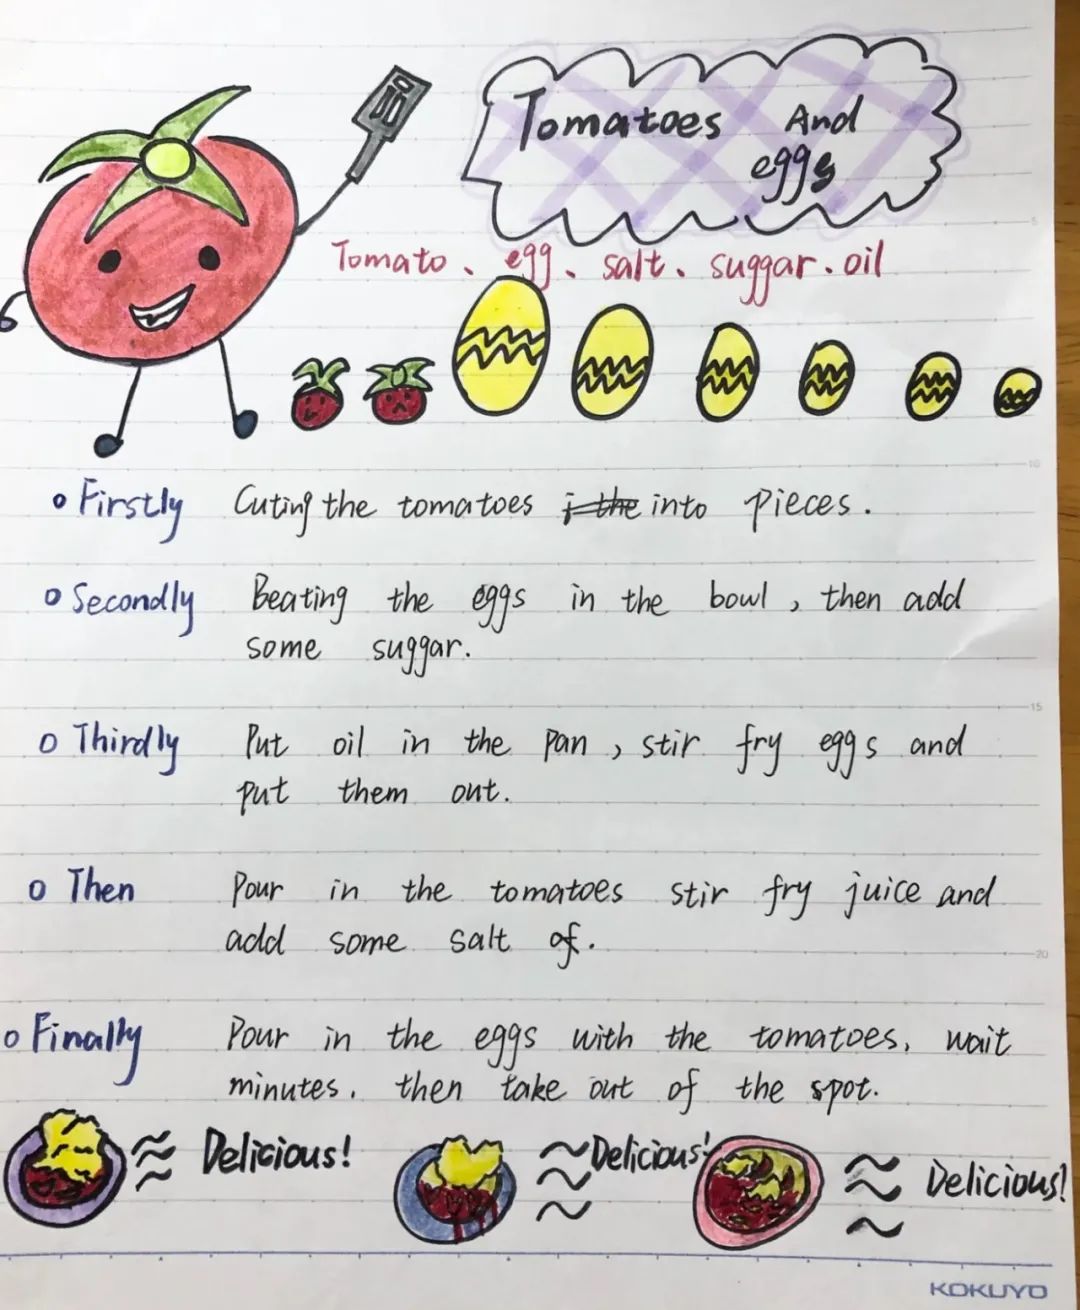 Tomatoes And
eggs
Tomato、egg、salt、suggar.oil
5
10
Firstly Cuting the tomatoes into pieces.
Secondly Beating the eggs in the bowl, then add
some suggar.
15
Thirdly Put oil in the pan, stir fry eggs and
put them out.
Then Pour in the tomatoes stir fry juice and
add some salt of.
20
Finally Pour in the eggs with the tomatoes, wait
minutes, then take out of the spot.
Delicious! Delicious! Delicious!
KOKUYO